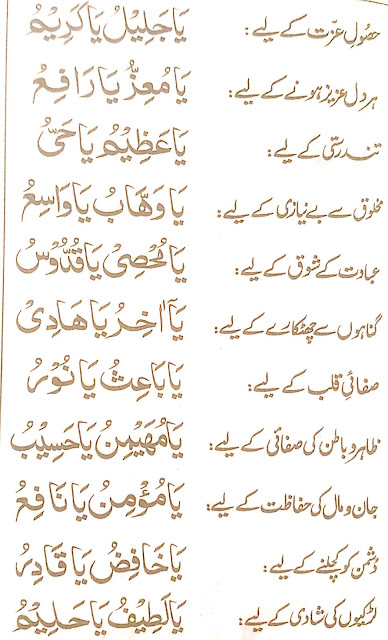 حصولِ عزّت کے لیے: يَا جَلِيْلُ يَا كَرِيْمُ
ہر دل عزیز ہونے کے لیے: يَا مُعِزُّ يَا رَافِعُ
تندرستی کے لیے: يَا عَظِيْمُ يَا حَيُّ
مخلوق سے بے نیازی کے لیے: يَا وَهَّابُ يَا وَاسِعُ
عبادت کے شوق کے لیے: يَا مُحْصِيْ يَا قُدُّوْسُ
گناہوں سے چھٹکارے کے لیے: يَا اٰخِرُ يَا هَادِيْ
صفائیِ قلب کے لیے: يَا بَاعِثُ يَا نُوْرُ
ظاہر و باطن کی صفائی کے لیے: يَا مُهَيْمِنُ يَا حَسِيْبُ
جان و مال کی حفاظت کے لیے: يَا مُؤْمِنُ يَا نَافِعُ
دشمن کو کچلنے کے لیے: يَا خَافِضُ يَا قَادِرُ
لڑکیوں کی شادی کے لیے: يَا لَطِيْفُ يَا حَلِيْمُ